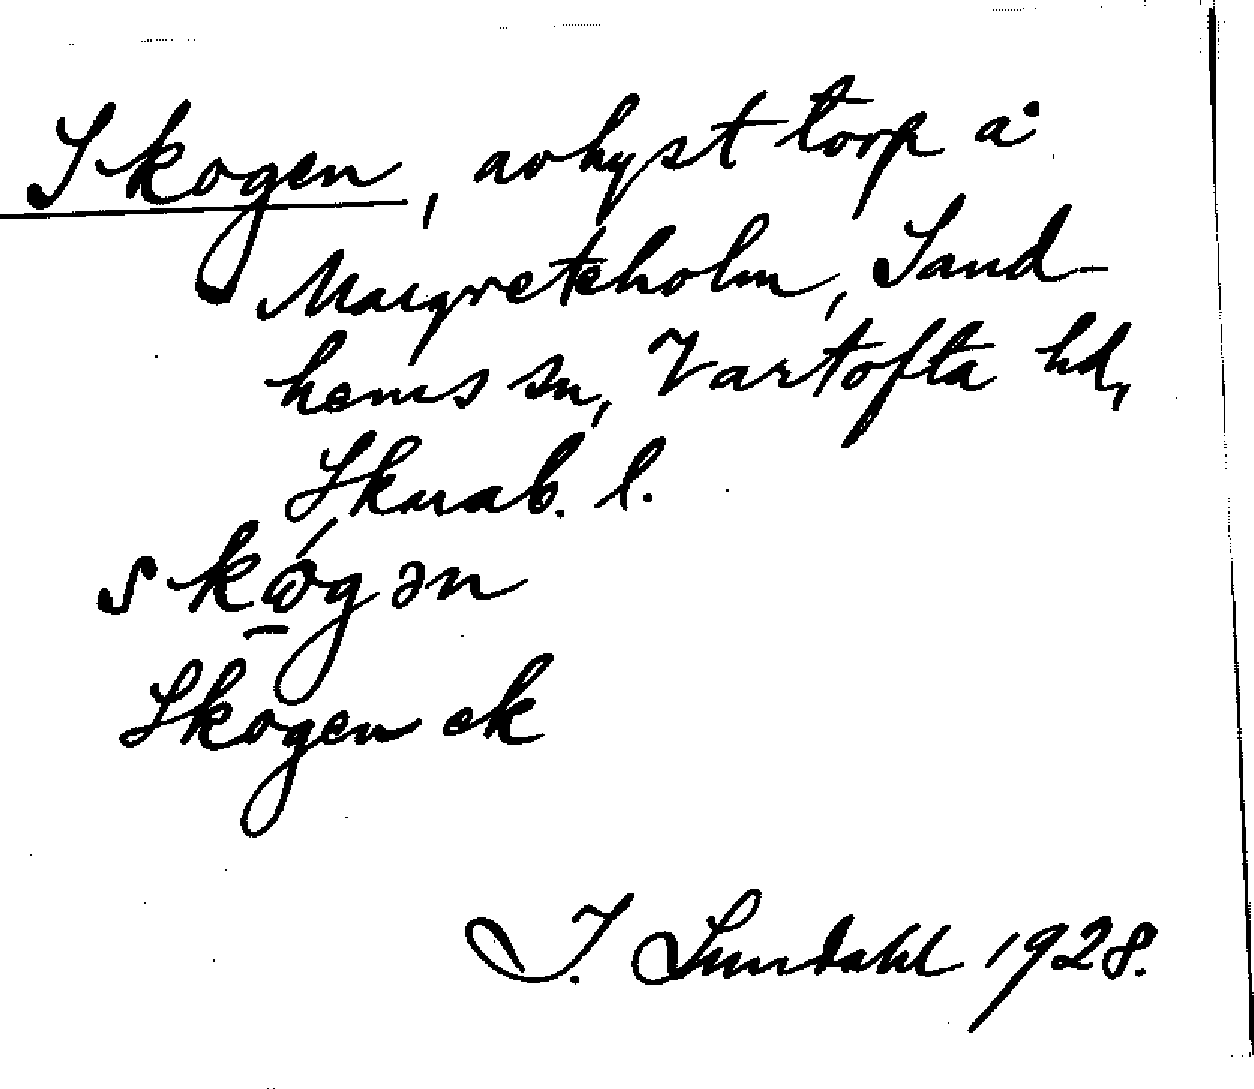 Skogen, avhyst torp å
Margreteholm, Sand-
hems sn, Vartofta hd,
Skarab. l.
skώ̱gən
Skogen ek
I. Lundahl 1928.